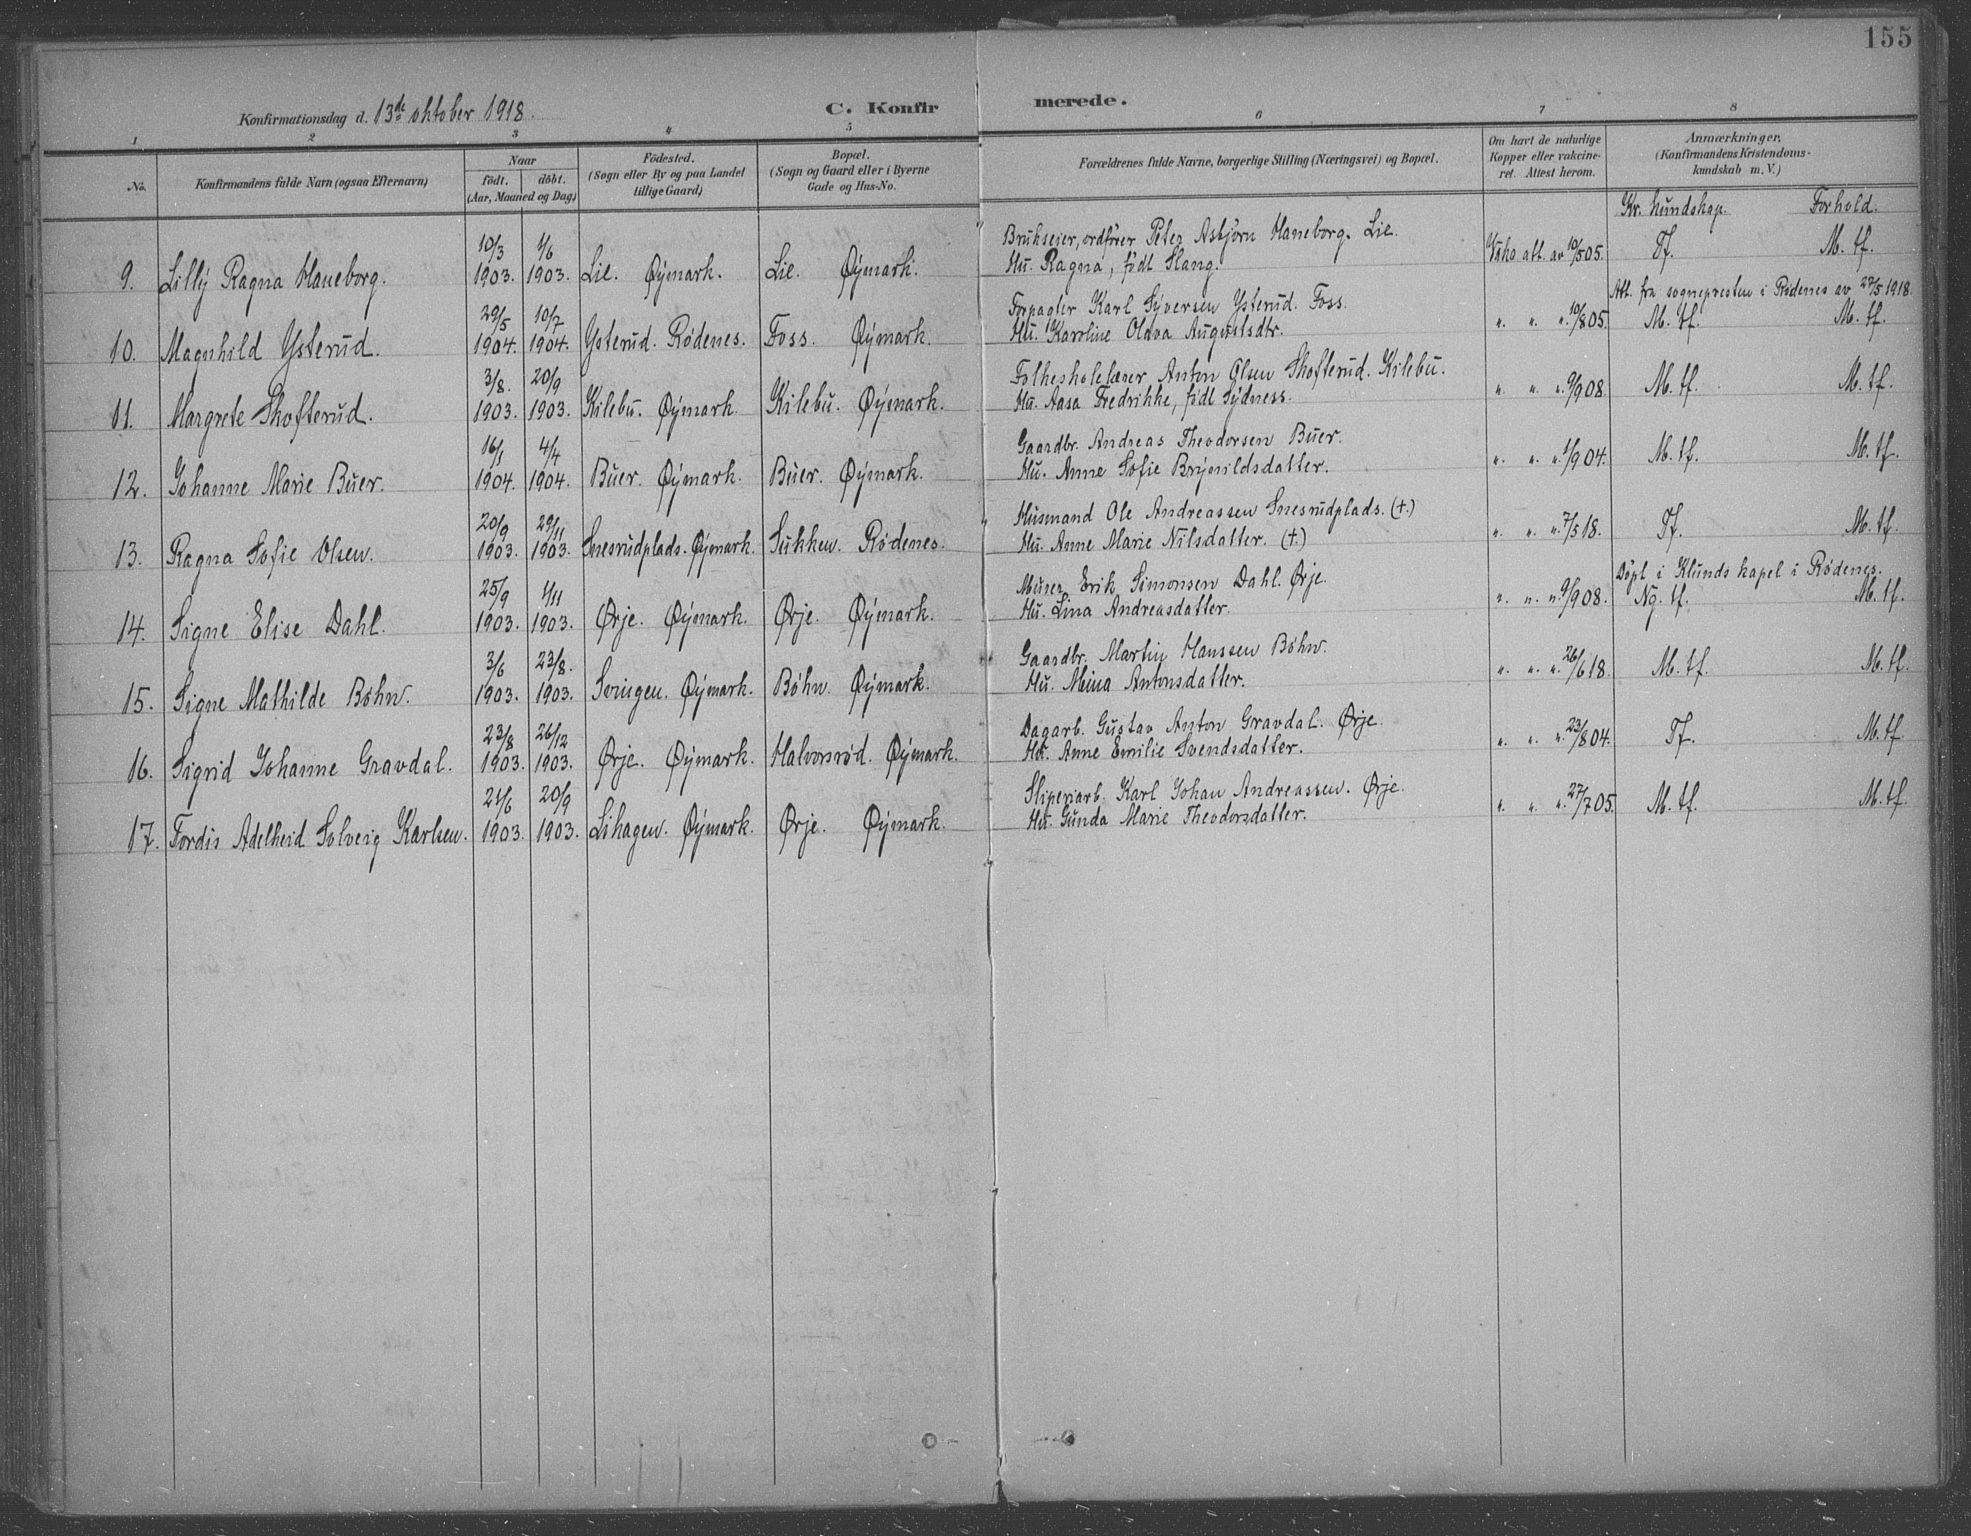 155
Konfirmationsdag d. 13de oktober 1918.
C. Konfirmerede.
1 2 3 4 5 6 7 8
No.
Konfirmandens fulde Navn (ogsaa Efternavn)
Naar
født. døbt.
(Aar, Maaned og Dag)
Fødested.
(Sogn eller By og paa Landet
tillige Gaard)
Bopæl.
(Sogn og Gaard eller i Byerne
Gade og Hus-No.
Forældrenes fulde Navne, borgerlige Stilling (Næringsvei) og Bopæl.
Om havt de naturlige
Kopper eller vakcine-
ret. Attest herom.
Anmærkninger,
(Konfirmandens Kristendoms-
kundskab m. V.)
Kr. kundskap. Forhold.
10/3 1/6 Brukseier, ordfører Peter Asbjørn Haneborg. Lie.
9. Lilly Ragna Haneborg. 1903. 1903. Lie. Øymark. Lie. Øymark. Hu. Ragna, født Slang. Vakc att. av 10/5 05. Tf. M. tf.
Att. fra sognepresten i Rødenes av 27/5 1918.
29/5 10/7 Forpagter Karl Syversen Ysterud. Foss.
10. Magnhild Ysterud. 1904. 1904. Ysterud. Rødenes. Foss. Øymark. Hu. Karoline Olava Augustsdtr. " " " 10/8 05. M. tf. M. tf.
3/8. 20/9 Folkeskolelærer Anton Olsen Skofterud. Kilebu.
11. Margrete Skofterud. 1903. 1903. Kilebu. Øymark. Kilebu. Øymark. Hu. Aasa Fredrikke, født Sydness. " " " 9/9 08. M. tf. M. tf.
16/1 4/4 Gaardbr. Andreas Theodorsen Buer.
12. Johanne Marie Buer. 1904. 1904. Buer. Øymark. Buer. Øymark. Hu. Anne Sofie Brynildsdatter. " " " 1/9 04. M. tf. M. tf.
20/9 29/11 Husmand Ole Andreassen Snesrudplads. (†.)
13. Ragna Sofie Olsen. 1903. 1903. Snesrudplads. Øymark. Sukken. Rødenes. Hu. Anne Marie Nilsdatter. (†) " " " 7/5 18. Tf. M. tf.
Døpt i Klunds kapel i Rødenes.
25/9 1/11 Murer Erik Simonsen Dahl. Ørje.
14. Signe Elise Dahl. 1903. 1903. Ørje. Øymark. Ørje. Øymark. Hu. Lina Andreasdatter. " " " 9/9 08. Ng. tf. M. tf.
3/6 23/8. Gaardbr. Martin Hanssen Bøhn.
15. Signe Mathilde Bøhn. 1903. 1903. Svingen. Øymark. Bøhn. Øymark. Hu. Mina Antonsdatter. " " " 26/6 18. M. tf. M. tf.
23/8 26/12 Dagarb. Gustav Anton Gravdal. Ørje.
16. Sigrid Johanne Gravdal. 1903. 1903. Ørje. Øymark. Halvorsrød. Øymark. Hu. Anne Emilie Svendsdatter. " " " 23/8 04. Tf. M. tf.
21/6 20/9 Sliperiarb. Karl Johan Andreassen. Ørje.
17. Tordis Adelheid Solveig Karlsen. 1903. 1903. Lihagen. Øymark. Ørje. Øymark. Hu. Gunda Marie Theodorsdatter. " " " 27/7 05. M. tf. M. tf.